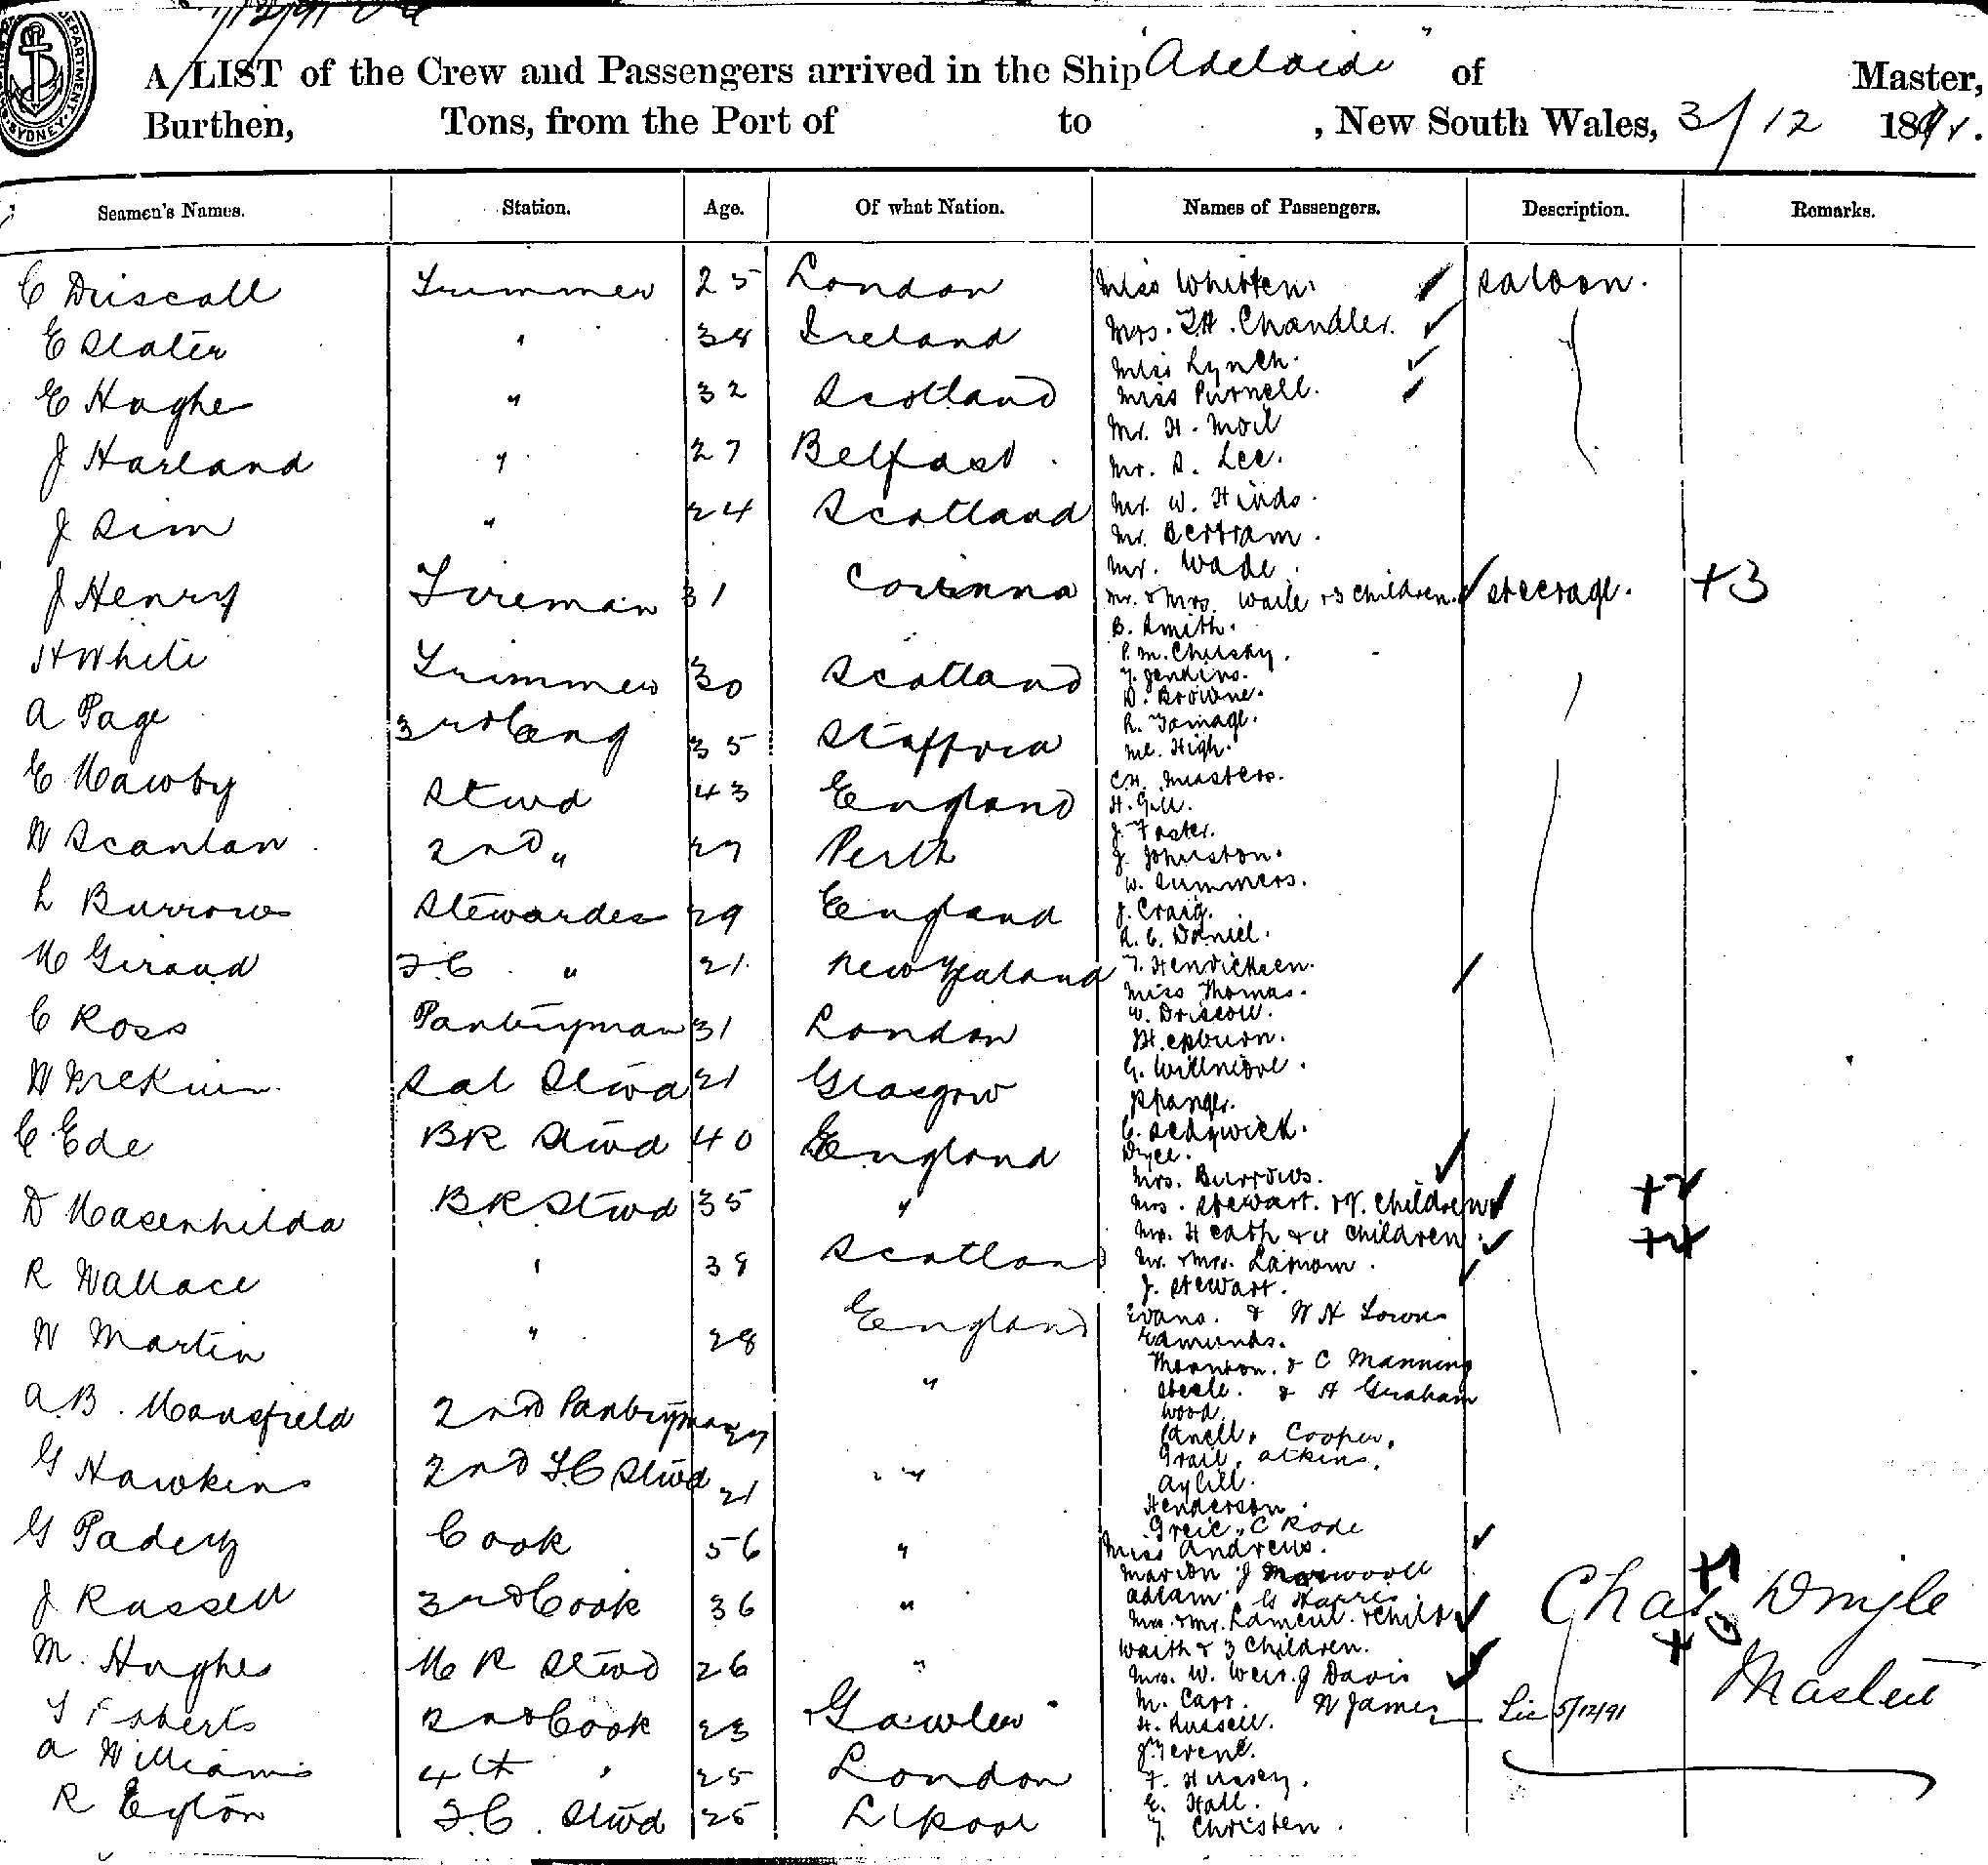 A LIST of the Crew and Passengers arrived in the Ship "Adelaide" of Master,
Burthen, Tons, from the Port of to , New South Wales, 3/12 1891.
DEPARTMENT SYDNEY
Seamen's Names. Station. Age. Of what Nation. Names of Passengers. Description. Remarks.
C Driscoll Trimmer 25 London
E Slater " 38 Ireland
E Hughes " 32 Scotland
J Harland " 27 Belfast
J Sim " 24 Scotland
J Henry Fireman 31 Corinna
H White Trimmer 30 Scotland
A Page 3rd Eng 35
E Mawby Stwd 43 England
W Scanlan 2nd " 27 Perth
L Burrows Stewardess 29 England
M Giraud F.C. " 21 New Zealand
C Ross Pantryman 31 London
W Sal Stwd 21 Glasgow
C Ede BR Stwd 40 England
D BR Stwd 35 "
R Wallace " 38 Scotland
W Martin " 28 England
A.B. Mansfield 2nd Pantryman 27 "
G Hawkins 2nd F.C Stwd 21 "
G Cook 56 "
J Russell 3rd Cook 36 "
M. Hughes M R Stwd 26 "
2nd Cook 23 Gawler
A Williams 4th " 25 London
R Eyton F.C. Stwd 25 L'pool
Miss Whitten. Saloon.
Mrs. T.H. Chandler.
Miss Lynch.
Miss Purnell.
Mr. H. Moil
Mr. S. Lee.
Mr. W. Hinds.
Mr. Bertram.
Mr. Wade.
Mr. & Mrs. Waile & 3 Children. Steerage. +3
B. Smith.
P.M.
T. Jenkins.
D. Browne.
R.
High.
C.H. Masters.
H. Gill.
J. Foster.
J. Johnston.
W. Summers.
J. Craig.
A. C. Daniel.
T. Hendricksen.
Miss Thomas.
W. Driscoll.
Hepburn.
G. Willmore.
C. Sedgwick.
Dyce.
Mrs. Burrows.
Mrs. Stewart. & Children +2
Mrs. Heath & 4 Children. +4
Mr. & Mrs.
J. Stewart.
Evans. & W H
Edmunds.
Thornton. & C Manning
Steele. & A Graham
Wood.
Cooper.
Grail. Atkins.
Henderson.
C Rode
Miss Andrews.
Marion J
Adlam. G Harris +1
Mrs. & Mr. & Child
Waith & 3 Children.
Mrs. W. Weir. J Davis
M. Carr. W James Lic 5/12/91
H. Russell.
F. Hussey.
E. Hall.
T. Christen.
Chas
Master